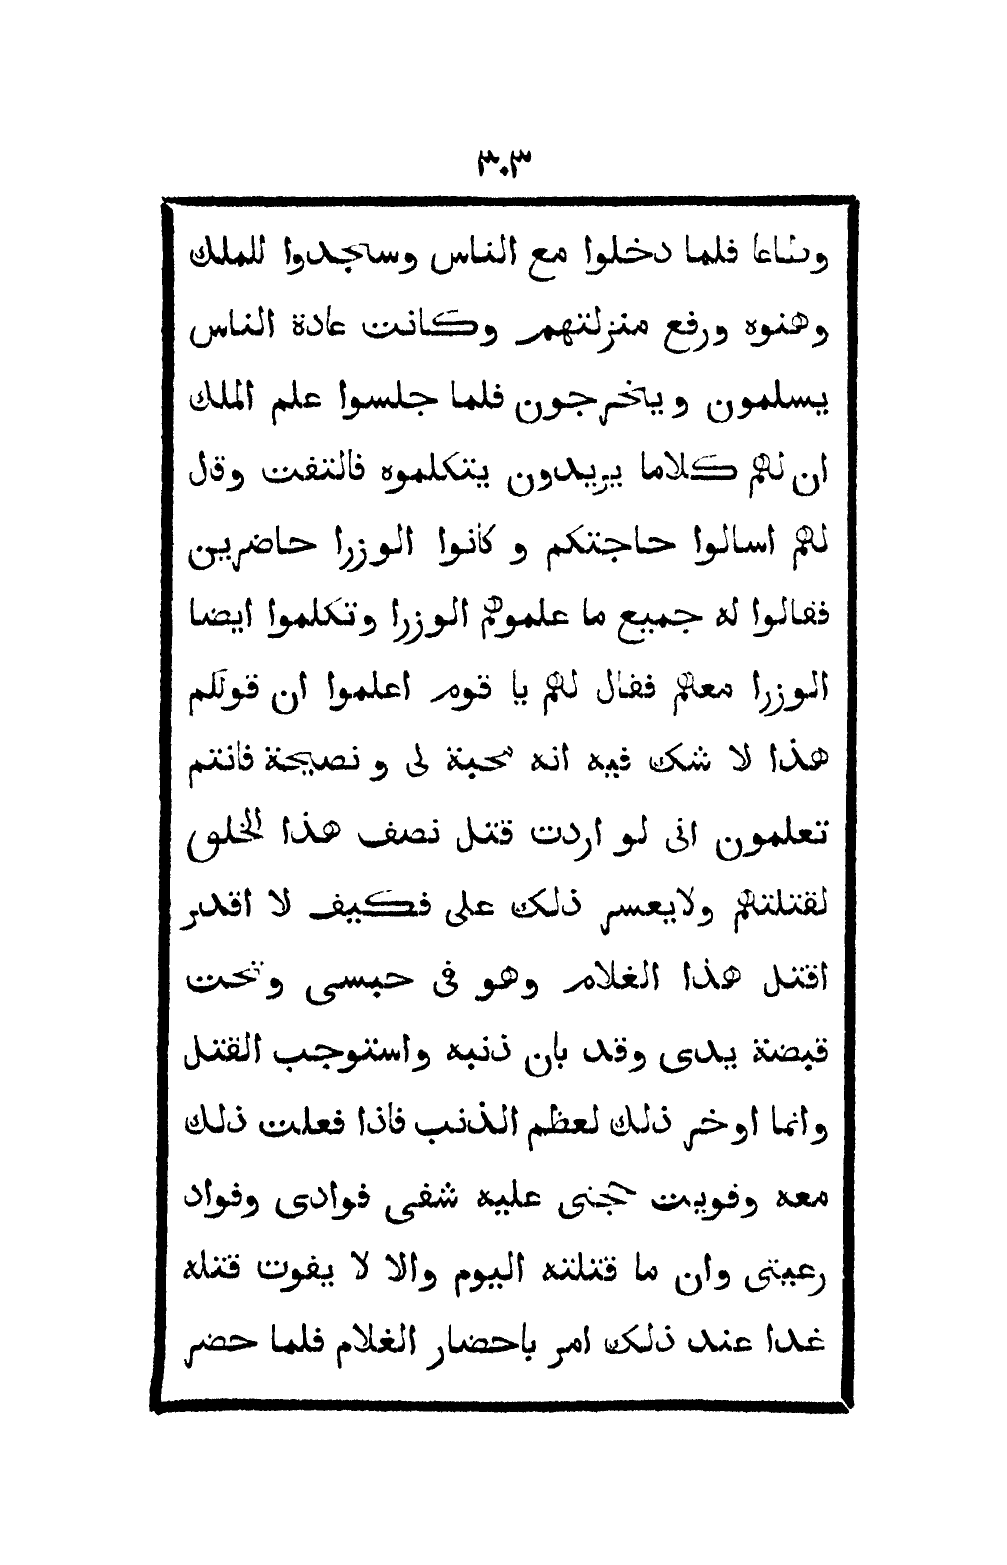 ٣٠٣
وساعا فلما دخلوا مع الناس وسجدوا للملك
وهنوه ورفع منزلتهم وكانت عادة الناس
يسلمون ويخرجون فلما جلسوا علم الملك
ان لهم كلاما يريدون يتكلموه فالتفت وقل
لهم اسالوا حاجتكم و كانوا الوزرا حاضرين
فقالوا له جميع ما علموهم الوزرا وتكلموا ايضا
الوزرا معهم فقال لهم يا قوم اعلموا ان قولكم
هذا لا شك فيه انه محبة لى و نصيحة فانتم
تعلمون انى لو اردت قتل نصف هذا الخلق
لقتلتهم ولايعسر ذلك على فكيف لا اقدر
اقتل هذا الغلام وهو فى حبسى وتحت
قبضة يدى وقد بان ذنبه واستوجب القتل
وانما اوخر ذلك لعظم الذنب فاذا فعلت ذلك
معه وقويت حجتى عليه شفى فوادى وفواد
رعيتى وان ما قتلته اليوم والا لا يفوت قتله
غدا عند ذلك امر باحضار الغلام فلما حضر